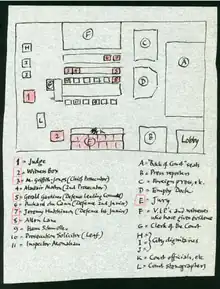 H
I
J
1
L
2
F
C
A
D
E
B
G
Lobby
1 = Judge
2 = Witness Box
3 = M. Griffith-Jones (Chief Prosecutor)
4 = (2nd Prosecutor)
5 = Gerald Gardiner (Defense Leading Counsel)
6 = Richard du Cann (Defense 2nd Junior)
7 = Jeremy Hutchinson (Defense 1st Junior)
8 = Allen Lane
9 = Hans Schmoller
10 = Prosecution Solicitor (Leaf)
11 = Inspector Monahan
A = Back of Court seats
B = Press reporters
C = Foreign press, etc.
D = Empty Dock
E = Jury
F = V.I.P.'s and witnesses
who have given evidence
G = Clerk of the Court
H
I = City dignitaries
J
K = Court officials, etc.
L = Court stenographers